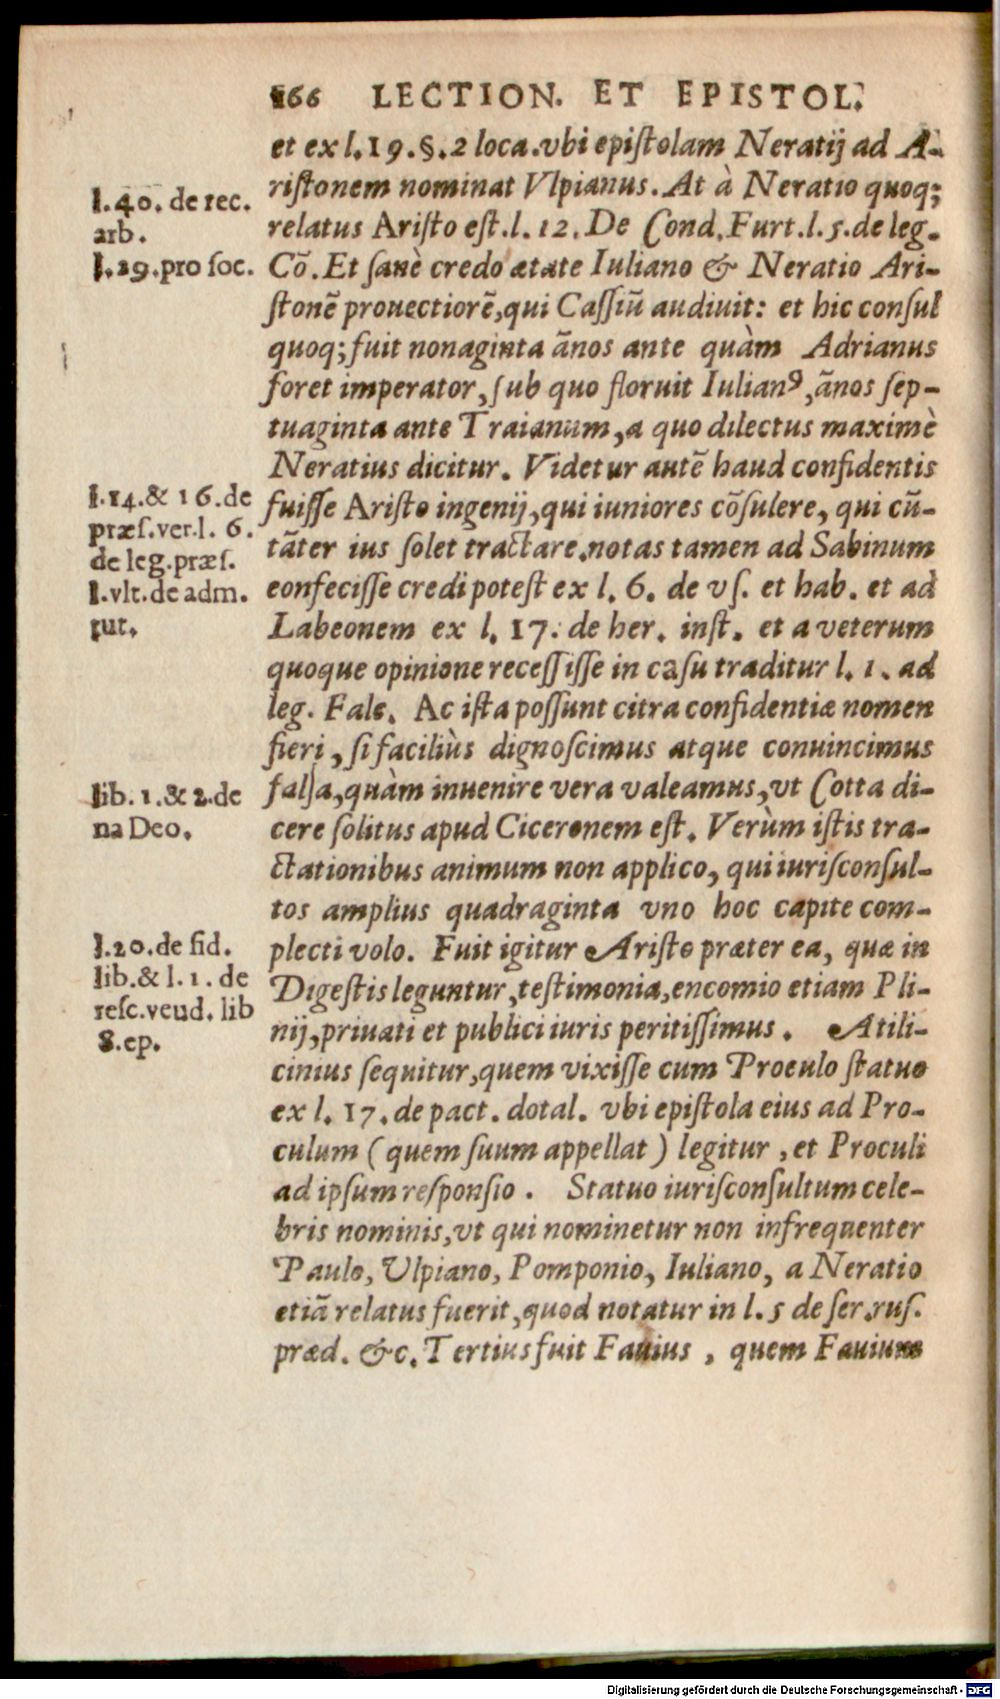 166 LECTION. ET EPISTOL.
et ex l. 19. §. 2 loca. vbi epiſtolam Neratij ad A-
riſtonem nominat Vlpianus. At à Neratio quoq;
relatus Ariſto eſt. l. 12. De Cond. Furt. l. 5. de leg.
Cõ. Et ſanè credo ætate Iuliano & Neratio Ari-
ſtonẽ prouectiorẽ, qui Caſſiũ audiuit: et hic conſul
quoq; fuit nonaginta ãnos ante quàm Adrianus
foret imperator, ſub quo floruit Iulianꝰ, ãnos ſep-
tuaginta ante Traianum, a quo dilectus maximè
Neratius dicitur. Videtur autẽ haud confidentis
fuiſſe Ariſto ingenij, qui iuniores cõſulere, qui cũ-
tãter ius ſolet tractare. notas tamen ad Sabinum
confeciſſe credi poteſt ex l. 6. de vſ. et hab. et ad
Labeonem ex l. 17. de her. inſt. et a veterum
quoque opinione receſſiſſe in caſu traditur l. 1. ad
leg. Falc. Ac iſta poſſunt citra confidentiæ nomen
fieri, ſi faciliùs dignoſcimus atque conuincimus
falſa, quàm inuenire vera valeamus, vt Cotta di-
cere ſolitus apud Ciceronem eſt. Verùm iſtis tra-
ctationibus animum non applico, qui iuriſconſul-
tos amplius quadraginta vno hoc capite com-
plecti volo. Fuit igitur Ariſto præter ea, quæ in
Digeſtis leguntur, teſtimonia, encomio etiam Pli-
nij, priuati et publici iuris peritiſſimus. Atili-
cinius ſequitur, quem vixiſſe cum Proculo ſtatuo
ex l. 17. de pact. dotal. vbi epiſtola eius ad Pro-
culum (quem ſuum appellat) legitur, et Proculi
ad ipſum reſponſio. Statuo iuriſconſultum cele-
bris nominis, vt qui nominetur non infrequenter
Paulo, Vlpiano, Pomponio, Iuliano, a Neratio
etiã relatus fuerit, quod notatur in l. 5 de ſer. ruſ.
præd. &c. Tertius fuit Fauius, quem Fauium
l. 40. de rec.
arb.
l. 29. pro ſoc.
l. 14. & 16. de
præſ. ver. l. 6.
de leg. præſ.
l. vlt. de adm.
tut.
lib. 1. & 2. de
na Deo.
l. 20. de fid.
lib. & l. 1. de
reſc. veud. lib
8. ep.
Digitalisierung gefördert durch die Deutsche Forschungsgemeinschaft - DFG